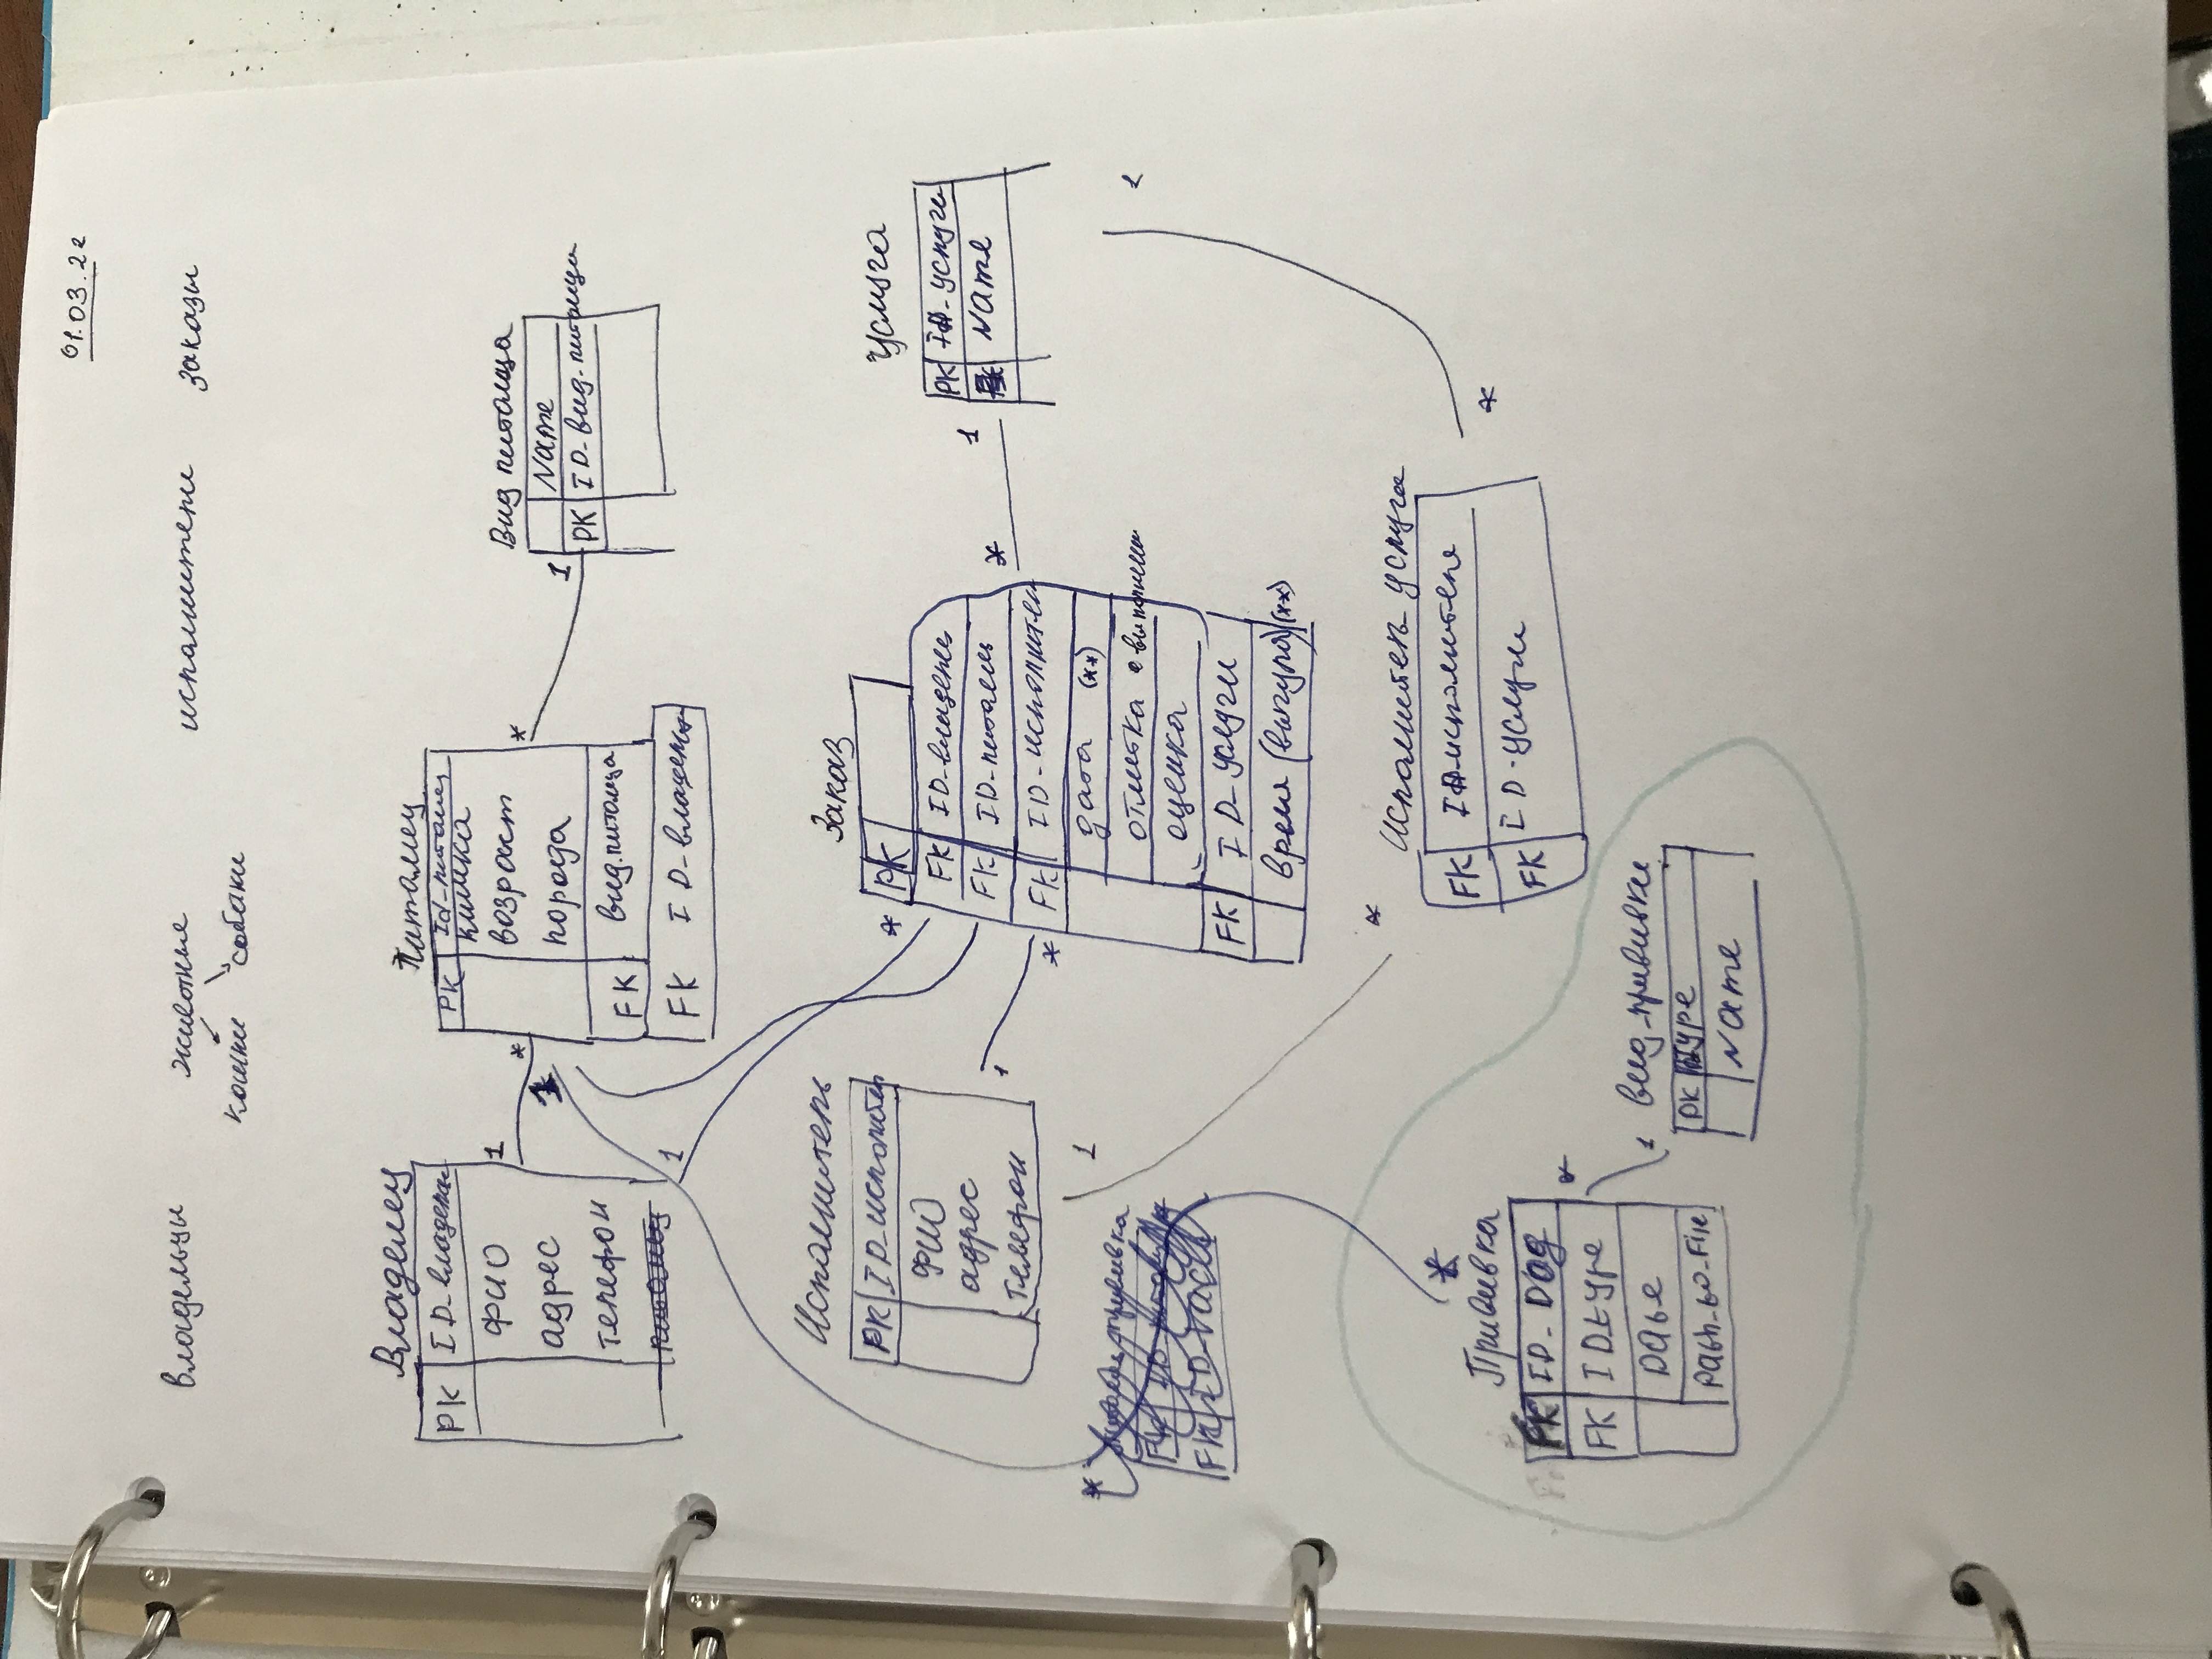 01.03.22
владельцы животные исполнители заказы
кошки собаки
Владелец
PK ID-владельц
ФИО
адрес
телефон
питомец
1 *
Питомец
PK Id-питомец
кличка
возраст
порода
FK вид.питомца
FK ID-владельц
* 1
Вид питомца
Name
PK ID-вид-питомца
1
1
Исполнитель
PK ID-исполнител
ФИО
адрес
телефон
1 *
1
Заказ
*
PK
FK ID-владелец
FK ID-питомец
FK ID-исполнител
дата (**)
отметка о выполнении
оценка
FK ID-услуги
время (выгула) (**)
* 1
Услуга
PK ID-услуги
Name
1
*
питомец прививка
FK
FK ID-vacc
*
Исполнитель услуга
FK ID-исполнителя
FK ID-услуги
*
*
Прививка
FK ID-Dog
FK IDtype
Date
Path-to-File
* 1
вид-прививки
PK IDtype
Name